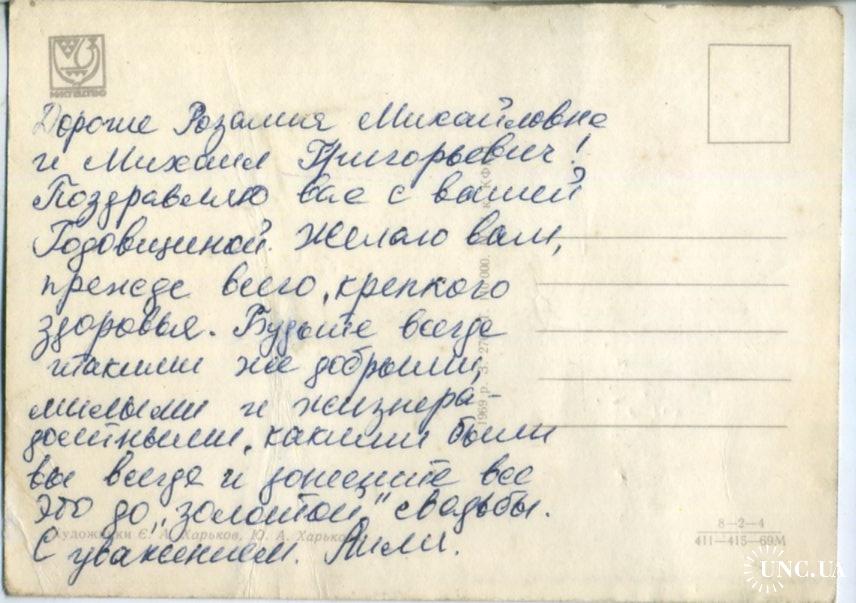 МИСТЕЦТВО
Дорогие Розалия Михайловна
и Михаил Григорьевич!
Поздравляю вас с вашей
Годовщиной. Желаю вам,
прежде всего, крепкого
здоровья. Будьте всегда
такими же добрыми,
милыми и жизнера-
достными, какими были
вы всегда и донесите все
это до „золотой" свадьбы.
С уважением.
Художники Є. А. Харьков, Ю. А. Харьков
1969 р. З. 000.
8—2—4
411—415—69М
UNC.UA